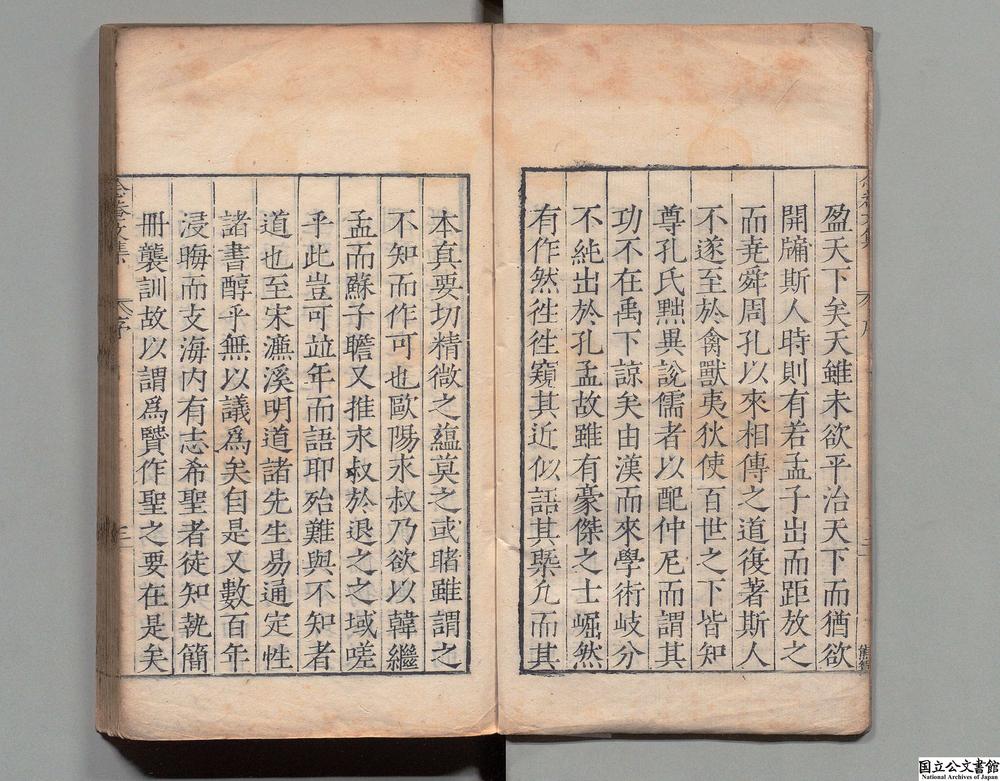 盈天下矣天雖未欲平治天下而猶欲
開牖斯人時則有若孟子出而距放之
而堯舜周孔以來相傳之道復著斯人
不遂至於禽獸夷狄使百世之下皆知
尊孔氏黜異說儒者以配仲尼而謂其
功不在禹下諒矣由漢而來學術岐分
不純出於孔孟故雖有豪傑之士崛然
有作然徃徃窺其近似語其槩凢而其
本真要切精微之蘊莫之或睹雖謂之
不知而作可也歐陽永叔乃欲以韓繼
孟而蘇子瞻又推永叔於退之之域嗟
乎此豈可竝年而語耶殆難與不知者
道也至宋濂溪明道諸先生易通定性
諸書醇乎無以議爲矣自是又數百年
浸晦而支海內有志希聖者徒知執簡
冊襲訓故以謂爲贒作聖之要在是矣
序
三
国立公文書館
National Archives of Japan